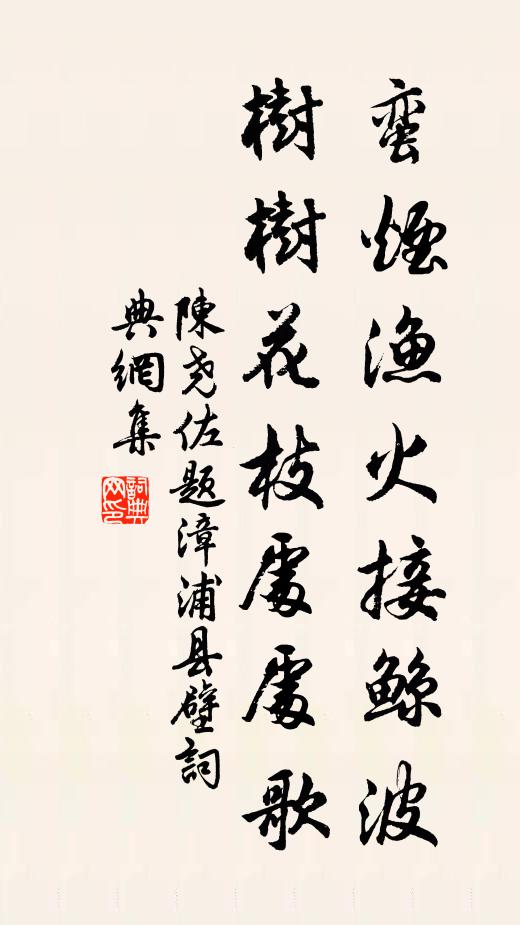 蛮煙漁火接鲸波
樹樹花枝處處歌
陳尧佐題漳浦县壁詞
典網集
詞典網印